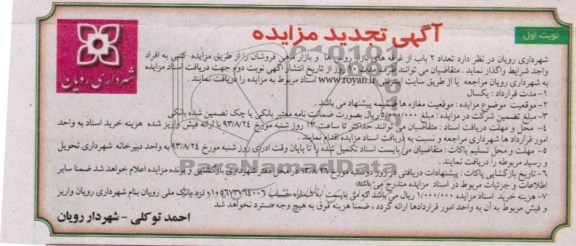 نوبت اول
آگهی تجدید مزایده
شهرداری رویان
شهرداری رویان در نظر دارد تعداد ۲ باب از غرفه های بازار روس ها و بازار ماهی فروشان را از طریق مزایده کتبی به افراد
واجد شرایط واگذار نماید. متقاضیان می توانند از تاریخ انتشار آگهی نوبت دوم جهت دریافت اسناد مزایده
به شهرداری رویان مراجعه یا از طریق سایت www.royan.ir اسناد مربوط به مزایده را دریافت نمایند.
۱- مدت قرارداد: یکسال
۲- موقعیت موضوع مزایده: موقعیت مغازه ها ضمیمه پیشنهاد می باشد.
۳- مبلغ تضمین شرکت در مزایده: مبلغ ریال بصورت ضمانت نامه معتبر بانکی یا چک تضمین شده بانکی
۴- محل و مهلت دریافت اسناد: متقاضیان می توانند حداکثر تا ساعت ۱۳ روز شنبه مورخ ۹۳/۸/۲۴ با ارائه فیش واریز شده هزینه خرید اسناد به واحد
امور قرارداد ها شهرداری مراجعه و نسبت به دریافت اسناد مزایده اقدام نمایند.
۵- مهلت و محل تسلیم پاکات: متقاضیان می بایست اسناد تکمیل شده را تا پایان وقت اداری روز شنبه مورخ ۹۳/۸/۲۴ به واحد دبیرخانه شهرداری تحویل
و رسید مربوطه را دریافت نمایند.
۶- تاریخ بازگشایی پاکات: پیشنهادات دریافتی در روز دوشنبه مورخ در محل دفتر شهرداری بازگشایی و برنده مزایده اعلام خواهد شد ضمنا سایر
اطلاعات و جزئیات مربوط در اسناد مزایده مندرج می باشد
۷- هزینه خرید اسناد مزایده ۱/۰۰۰/۰۰۰ ریال می باشد که می بایست به شماره حساب نزد بانک ملی رویان بنام شهرداری رویان واریز
و فیش مربوط به آن به واحد امور قراردادها ارائه گردد، ضمنا هزینه فوق به هیچ وجه مسترد نخواهد شد
احمد توکلی - شهردار رویان
ParsNamadData